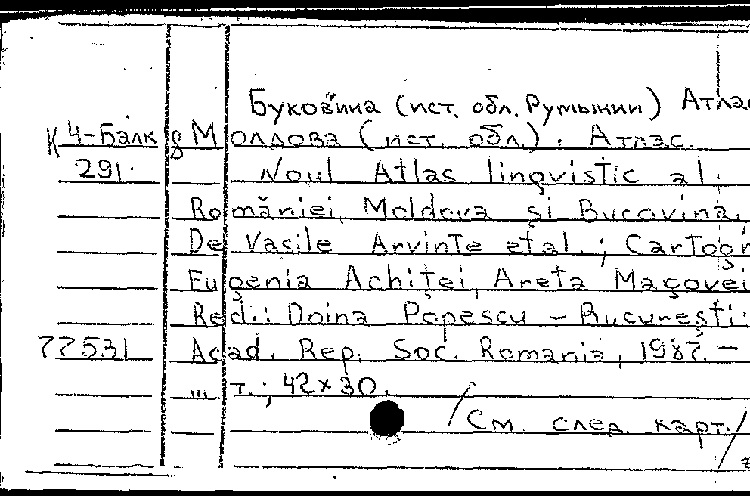 Буковина (ист. обл. Румынии) Атлас
К 4-Балк 8 Молдова (ист. обл.). Атлас.
291. Noul Atlas lingvistic al.
României, Moldova și Bucovina.
De Vasile Arvinte et al.; Cartogr
Eugenia Achiței, Areta Maçovei
Red.: Doina Popescu – București:
77531 Acad. Rep. Soc. Romania, 1987. –
... т.; 42×30.
/См. след. карт./